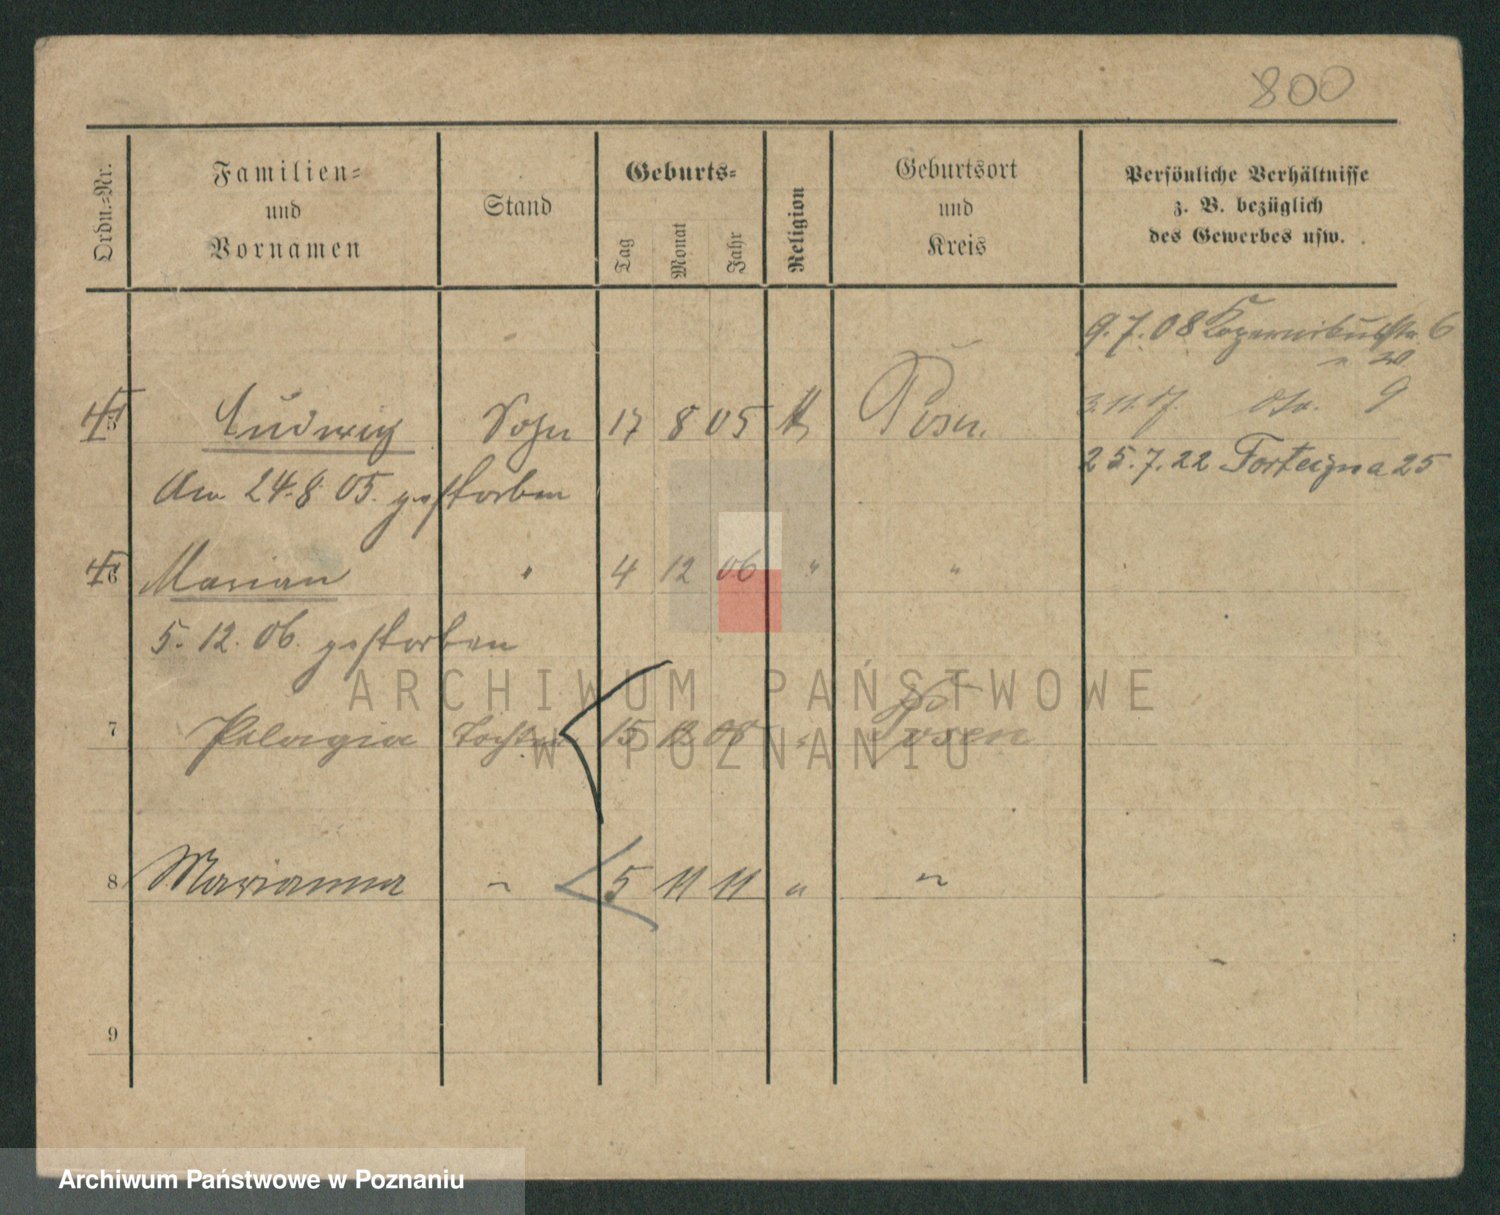 800
Ordn.-Nr.
Familien-
und
Vornamen
Stand
Geburts-
Tag
Monat
Jahr
Religion
Geburtsort
und
Kreis
Persönliche Verhältnisse
z. B. bezüglich
des Gewerbes usw.
9.7.08 Kopernikusstr. 6
5 Ludwig Sohn 17 8 05 Posen.
9
25.7.22 Forteczna 25
Am 24.8.05. gestorben
6 Marian " 4 12 06 " "
5.12.06. gestorben
ARCHIWUM PAŃSTWOWE
7 Pelagia Tochter 15 12 08 " Posen
W POZNANIU
8 Marianna " 5 11 11 " "
9
Archiwum Państwowe w Poznaniu